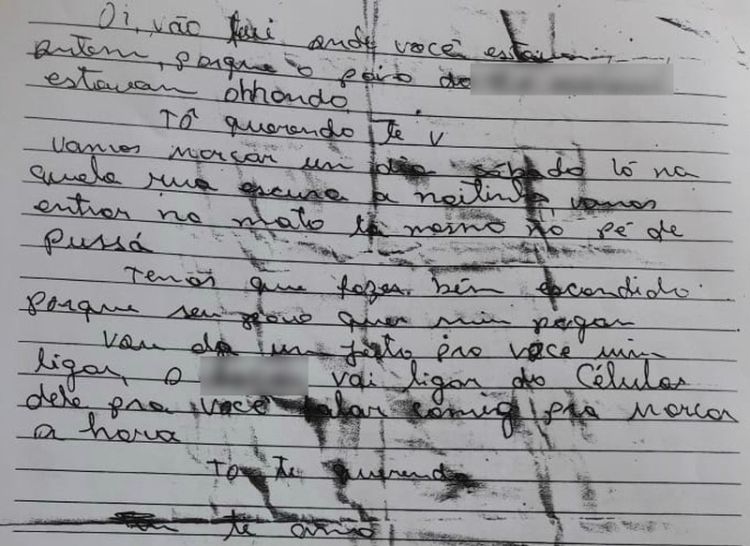 Oi, vão fui onde você estava
ontem, porque o povo do
estavan ohhando
Tô querendo te v
vamos marcar un dia sábado lá na
quela rua escura a noitinha, vamos
entrar no mato lá mesmo no pé de
pussá
Temos que fazer bém escondido
porque seu povo quer min pegar
Vou da un jeito pro você min
ligar, o vai ligar do Célular
dele pra você falar comig pra marcar
a hora
To te querendo
te amo